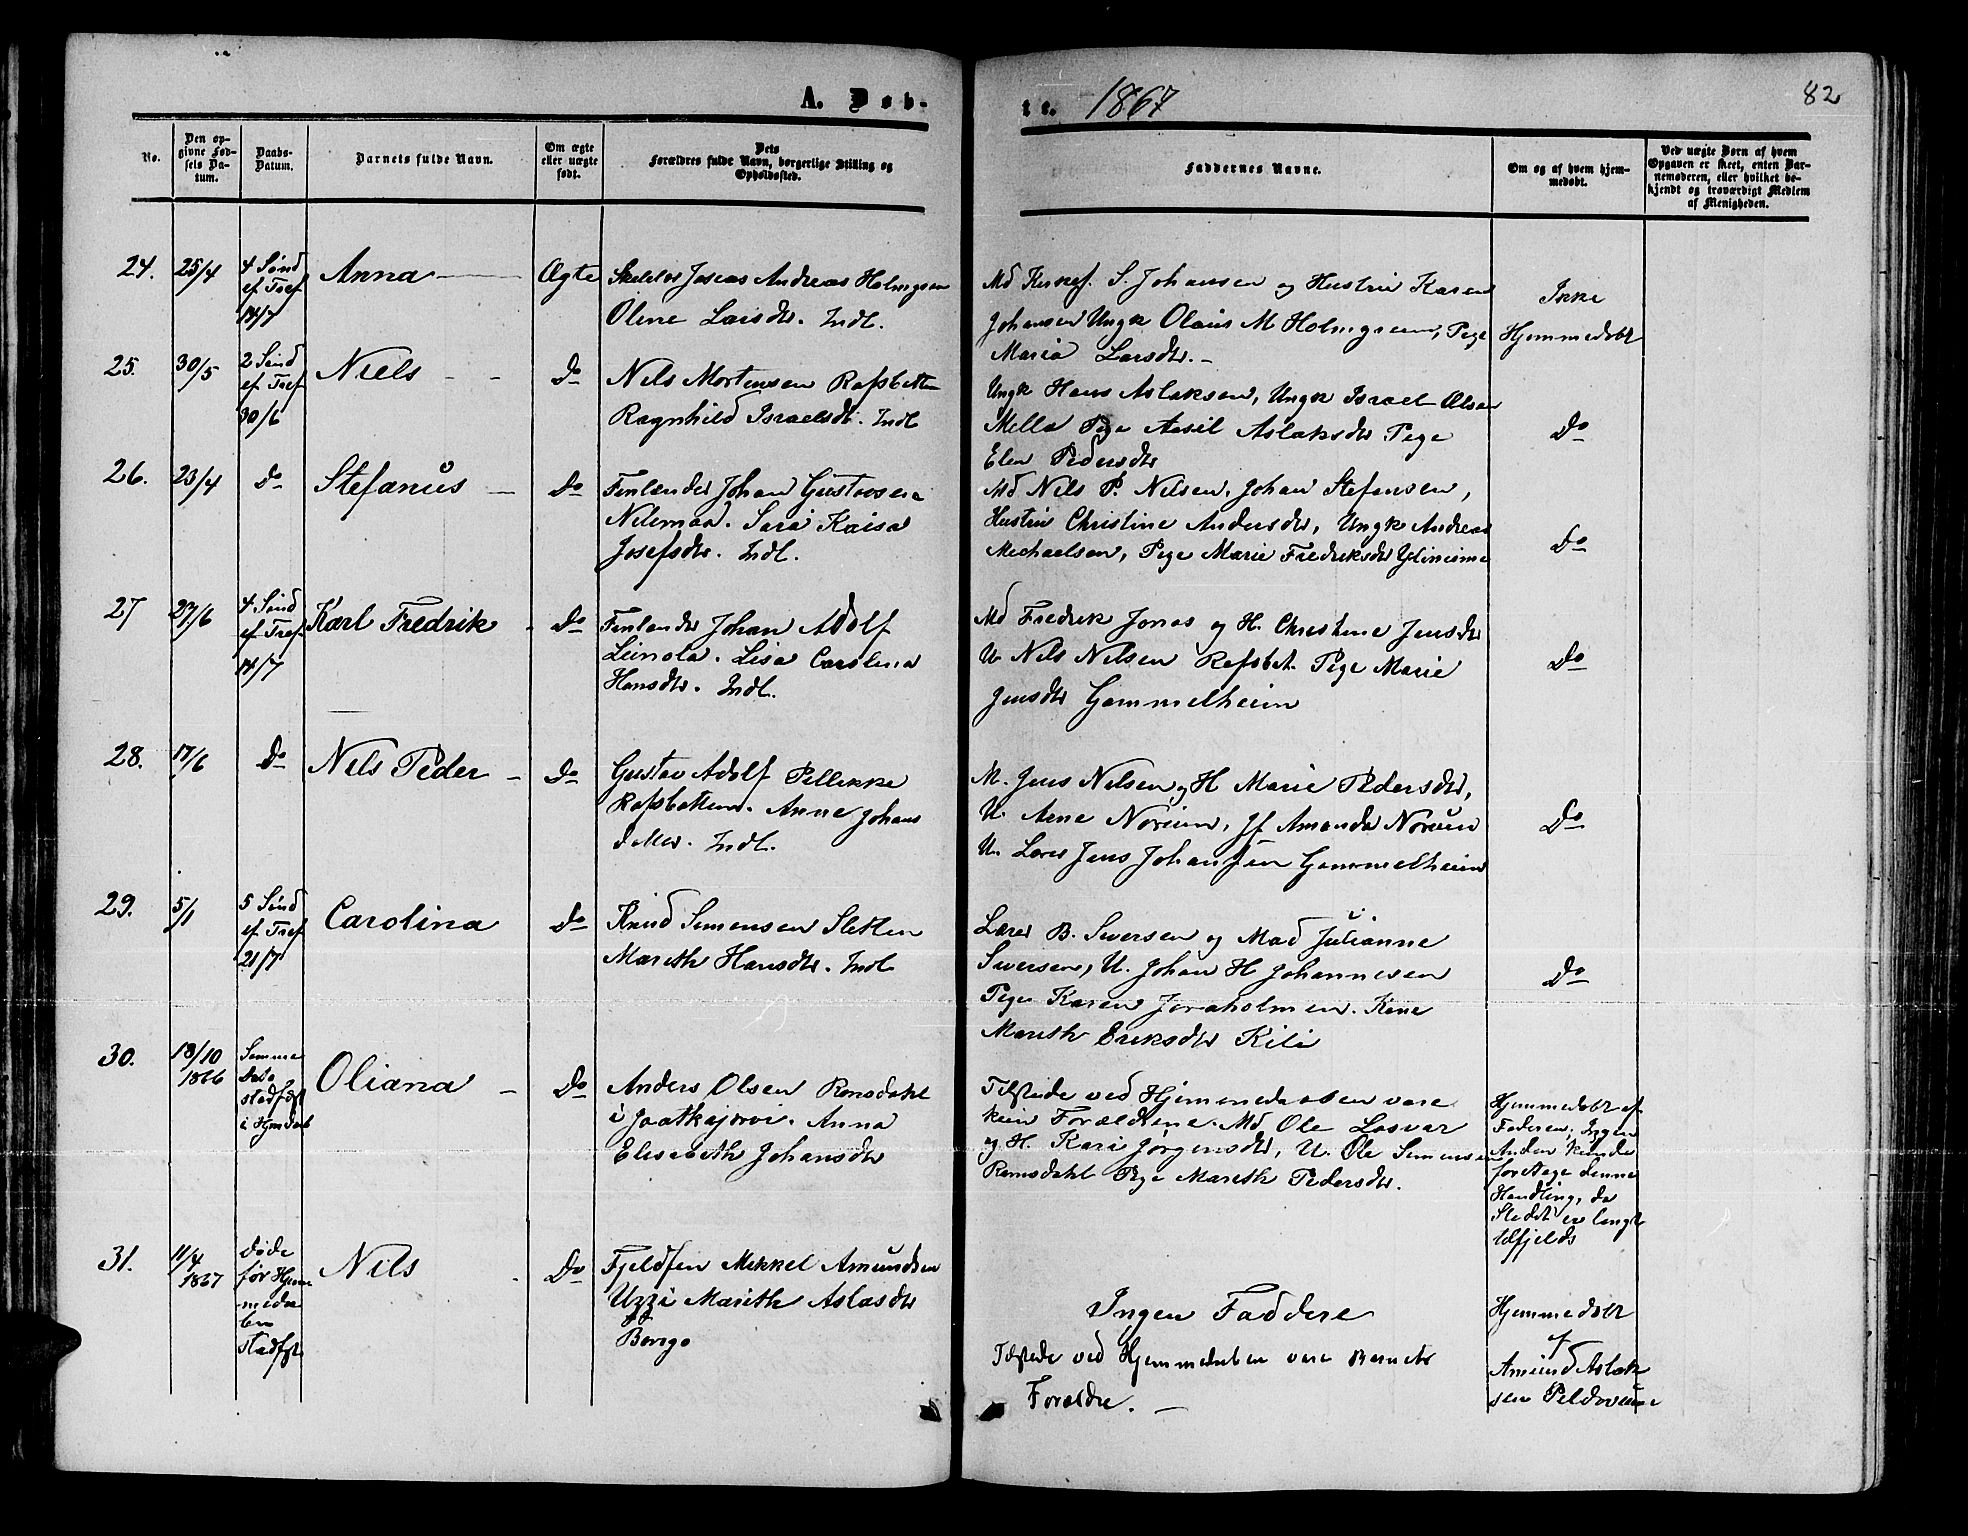 A. Døb-
te. 1867
82
No.
Den op-
givne Fød-
sels Da-
tum.
Daabs-
Datum.
Barnets fulde Navn.
Om ægte
eller uægte
født.
Dets
Forældres fulde Navn, borgerlige Stilling og
Opholdssted.
Faddernes Navne.
Om og af hvem hjem-
medøbt.
Ved uægte Børn af hvem
Opgaven er skeet, enten Bar-
nemoderen, eller hvilket be-
kjendt og troværdigt Medlem
af Menigheden.
24.
25/4
4 Sønd
ef Tref
14/7
Anna
Ægte
Andreas Holmgren
Olene Larsdtr. Indl.
S. Johansen og Hustru Karen
Johansen Ungk Olaus M Holmgreen, Pige
Maria Larsdtr. -
Ikke
Hjemmedøbt
25.
30/5
2 Sønd
ef Tref
30/6
Niels
Do
Nils Mortensen Rafsbotten
Ragnhild Israelsdt. Indl
Ungk Hans Aslaksen, Ungk Israel Olsen
Mella Pige Aasil Aslaksdtr Pige
Elen Pedersdtr
Do
26.
23/4
Do
Stefanus
Do
Finlænder Johan Gustavsen
Nilimaa. Sara Kaisa
Josefsdtr. Indl.
Md Nils P. Nilsen, Johan Stefansen,
Hustru Christine Andersdtr, Ungk Andreas
Michaelsen, Pige Marie Fredriksdtr
Do
27
27/6
4 Sønd
ef Tref
14/7
Karl Fredrik
Do
Finlænder Johan Adolf
Leinola. Lisa Carolina
Hansdtr. Indl.
Md Fredrik Jonas og H. Christine Jensdtr
U. Nils Nilsen Rafsbot. Pige Marie
Jensdtr Gammelheim
Do
28.
17/6
Do
Nils Peder
Do
Gustav Adolf Pellikka
Rafsbotten. Anne Johans
datter. Indl.
M. Jens Nilsen og H Marie Pedersdtr,
U. Arne Norum, Jf Amanda Norum
U. Lars Jens Johansen Gammelheim
Do
29.
5/1
5 Sønd
ef Tref
21/7
Carolina
Do
Knud Simensen Sletten
Marith Hansdtr. Indl
Lærer B. Siversen og Mad Julianne
Siversen, U. Johan H Johannesen
Pige Karen Joraholmen. Kone
Marith Eriksdtr Kili
Do
30.
18/10
1866
Samme
Dato
stadfæst
i Hjmdaab
Oliana
Do
Anders Olsen Romsdahl
i Jaatkajarvi. Anna
Elisabeth Johansdtr
Tilstede ved Hjemmedaaben vare
kun Forældrene. Md Ole Lasvar
og H. Kari Jørgensdtr, U. Ole Simensen
Romsdahl Pige Marith Pedersdtr.
Hjemmedøbt af
Faderen; Ingen
Anden kunde
foretage denne
Handling, da
Stedet er langt
tilfjelds
31.
11/4
1867
Døde
før Hjem
meda
ben
stadfæst
Nils
Do
Fjeldfin Mikkel Amundsen
Uzzi Marith Aslaksdtr
Bongo
Ingen Faddere
Tilstede ved Hjemmedaaben vare Barnets
Forældre. -
Hjemmedøbt
af
Amund Aslak
sen